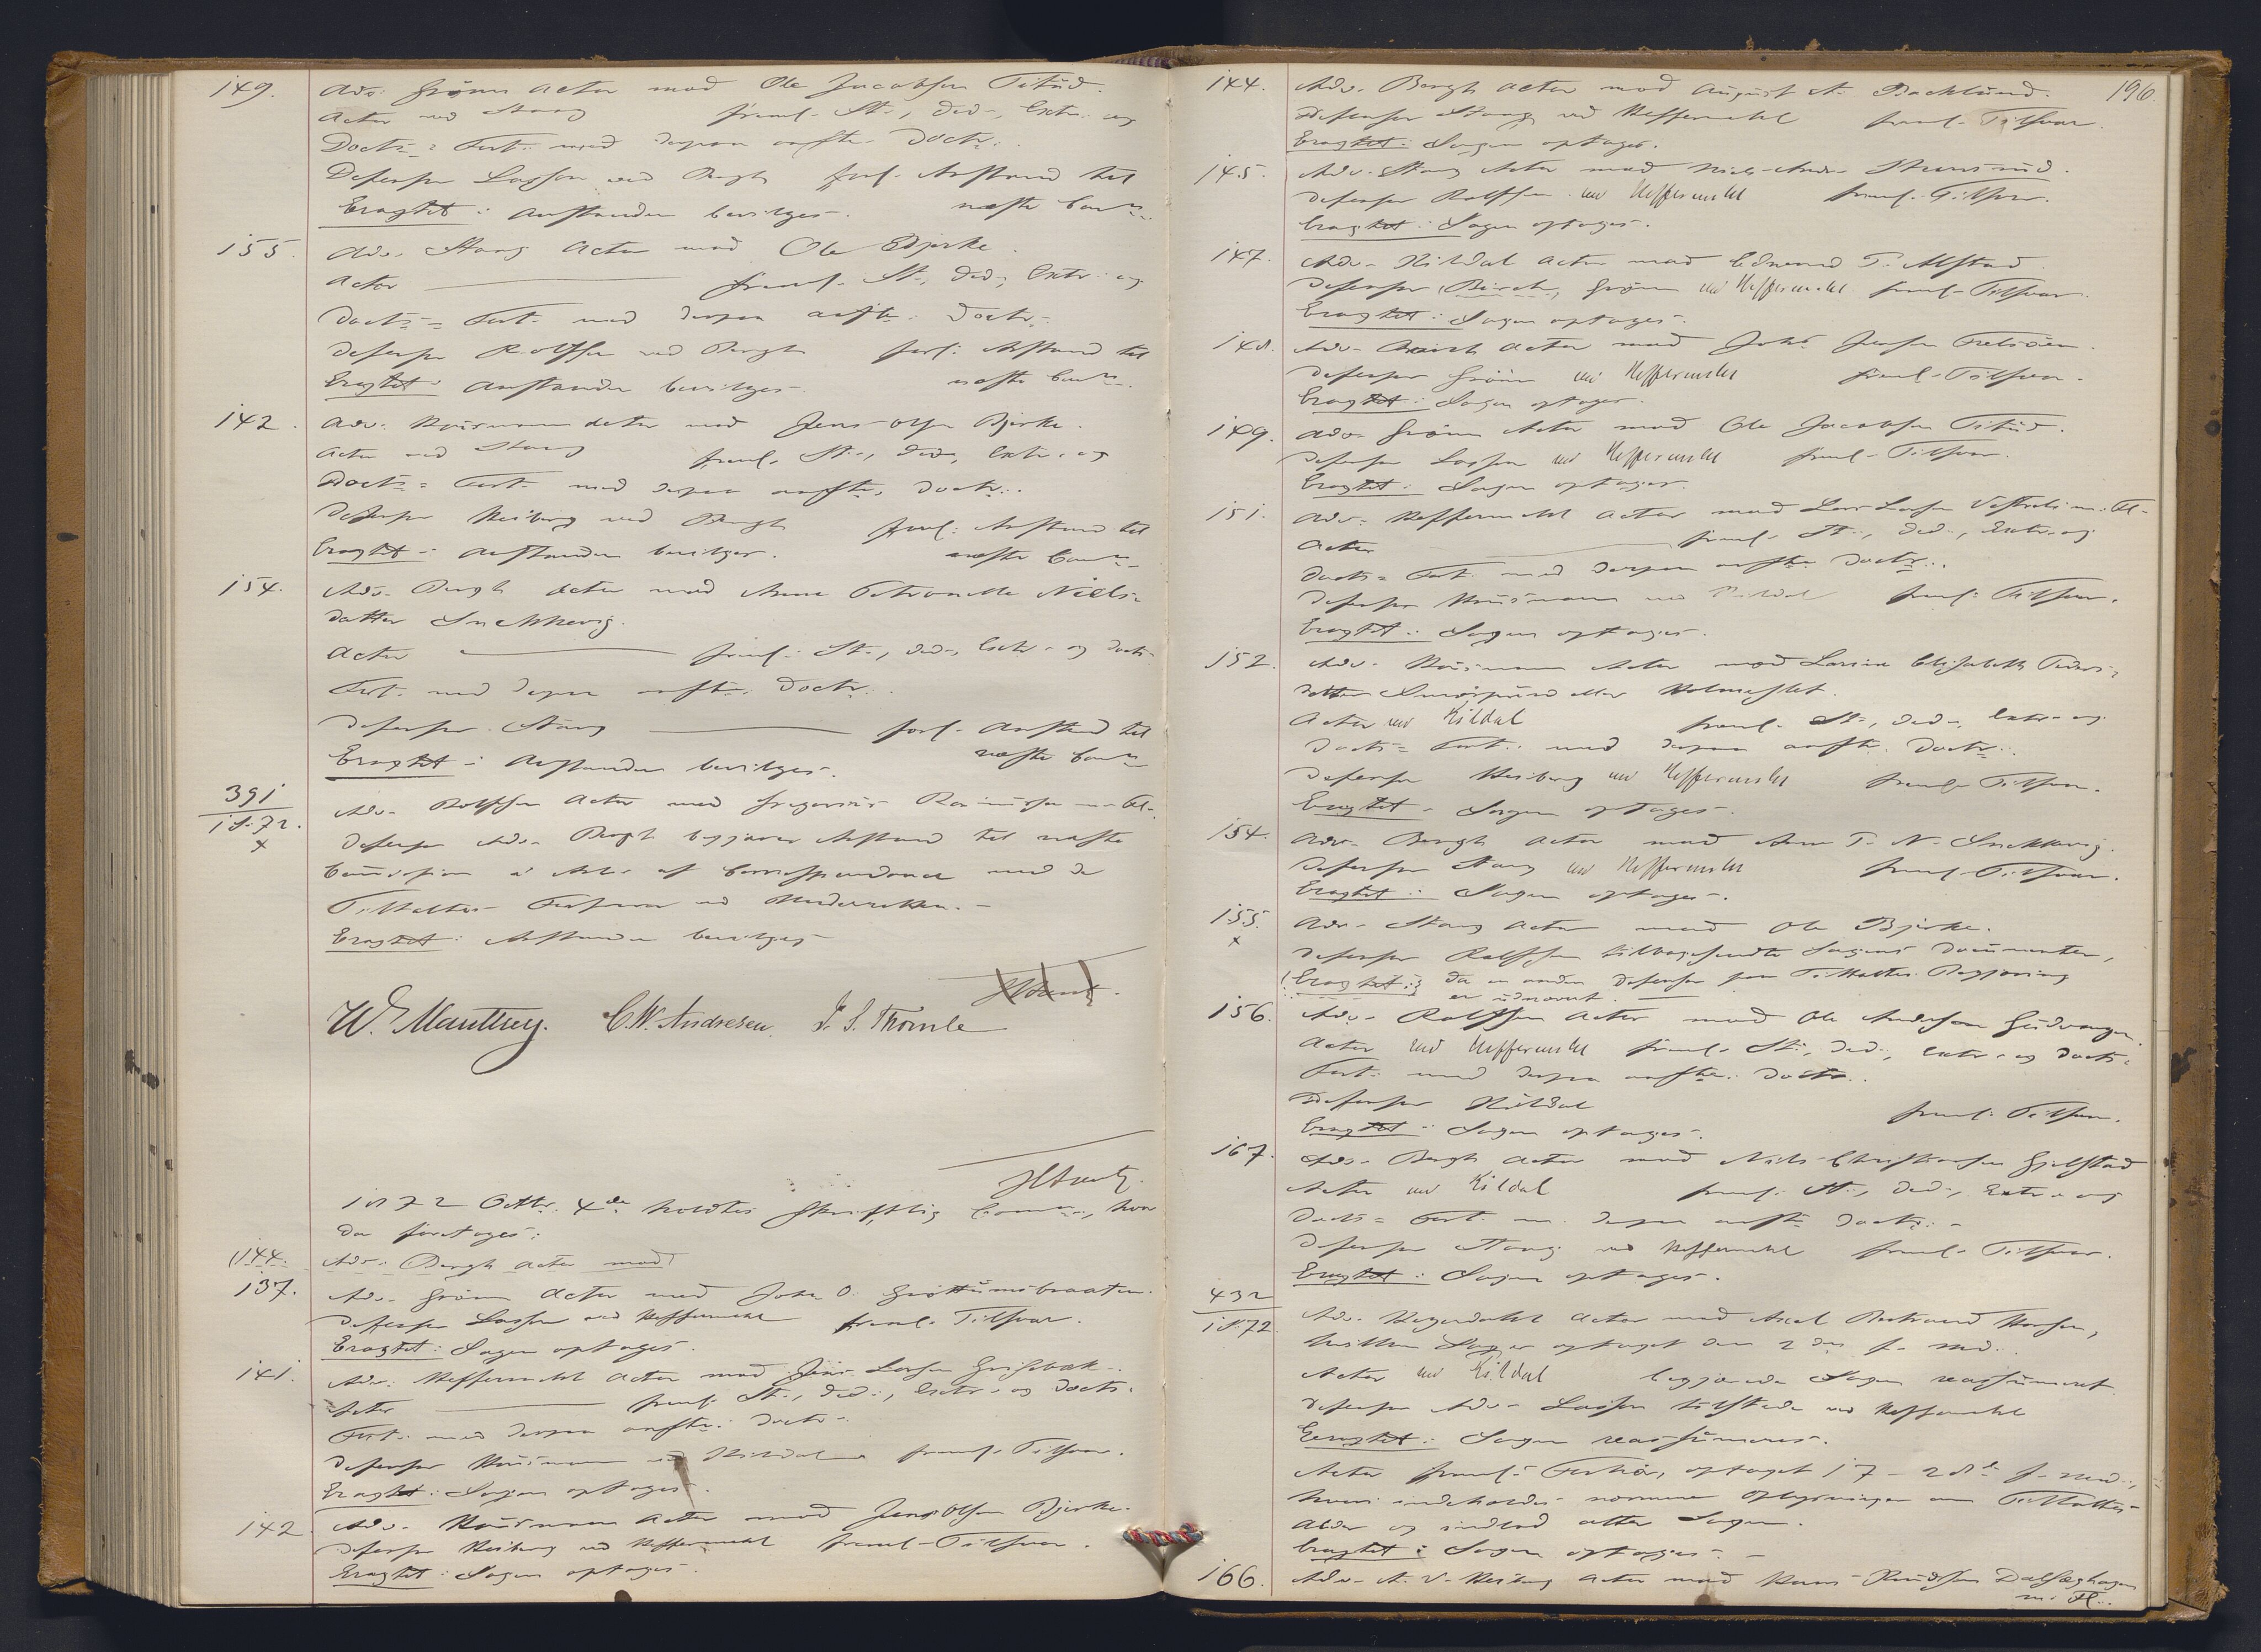 149. Adv. Grønn Actor mod Ole Jacobsen Titud.
Actor ved Stang freml. St., Ded., Extr. og
Docts.= Fort. med derpaa anfte. Doctr.
Defensor Lassen ved Bergh forl. Anstand til
Eragtet: Anstanden bevilges. næste Comn.
155. Adv. Stang Actor mod Ole Bjerke.
Actor freml. St., Ded., Extr. og
Docts.= Fort. med derpaa anfte. Doctr.
Defensor Rolfsen ved Bergh forl. Anstand til
Eragtet: Anstanden bevilges. næste Comn.
142. Adv. Actor mod Jens Olsen Bjerke.
Actor ved Stang freml. St., Ded., Extr. og
Docts.= Fort. med derpaa anfte. Doctr.
Defensor Heiberg ved Bergh forl. Anstand til
Eragtet: Anstanden bevilges. næste Comn.
154. Adv. Bergh Actor mod Anne Petronelle Niels=
datter Snekkevig.
Actor freml. St., Ded., Extr. og Docts.
Fort. med derpaa anfte. Doctr.
Defensor Stang forl. Anstand til
Eragtet: Anstanden bevilges. næste Comn.
391
18.72.
x
Adv. Rolfsen Actor mod Gregorius m. Fl.
Defensor Adv. Bergh begjærer Anstand til næste
af Correspondance med de
Tiltaltes Forsvar ved Underretten.
Eragtet: Anstanden bevilges
W. Manthey. C.W. Andresen. J. S. Thomle
1872 Octbr. 4de holdtes skriftlig Comn., hvor
da foretoges:
(144. Adv. Bergh Actor mod)
137. Adv. Grønn Actor mod John O. Grøttumsbraaten.
Defensor Lassen ved Heffermehl freml. Tilsvar.
Eragtet: Sagen optages.
141. Adv. Heffermehl Actor mod Jens Larsen
Actor freml. St., Ded., Extr. og Docts.
Fort. med derpaa anfte. Doctr.
Defensor ved Kildal freml. Tilsvar.
Eragtet: Sagen optages.
142. Adv. Actor mod Jens Olsen Bjerke.
Defensor Heiberg ved Heffermehl freml. Tilsvar.
Eragtet: Sagen optages.
196.
144. Adv. Bergh Actor mod August A. Backlund.
Defensor Stang ved Heffermehl freml. Tilsvar.
Eragtet: Sagen optages.
145. Adv. Stang Actor mod Niels Andr.
Defensor Rolfsen ved Heffermehl freml. Tilsvar.
Eragtet: Sagen optages.
147. Adv. Kildal Actor mod Edvard T. Alstad.
Defensor (Birch) Grønn ved Heffermehl freml. Tilsvar.
Eragtet: Sagen optages.
148. Adv. Birch Actor mod Johs. Jensen
Defensor Grønn ved Heffermehl freml. Tilsvar.
Eragtet: Sagen optages.
149. Adv. Grønn Actor mod Ole Jacobsen Titud.
Defensor Lassen ved Heffermehl freml. Tilsvar.
Eragtet: Sagen optages.
151. Adv. Heffermehl Actor mod Lars Larsen m. Fl.
Actor freml. St., Ded., Extr. og
Docts.= Fort. med derpaa anfte. Doctr.
Defensor ved Kildal freml. Tilsvar.
Eragtet: Sagen optages.
152. Adv. Actor mod Larine Elisabeth Peders=
datter eller Holmeslet.
Actor ved Kildal freml. St., Ded., Extr. og
Docts.= Fort. med derpaa anfte. Doctr.
Defensor Heiberg ved Heffermehl freml. Tilsvar.
Eragtet: Sagen optages.
154. Adv. Bergh Actor mod Anne P. N. Snekkevig.
Defensor Stang ved Heffermehl freml. Tilsvar.
Eragtet: Sagen optages.
155.
x
Adv. Stang Actor mod Ole Bjerke.
Defensor Rolfsen tilbagesendte Sagens Documenter,
(Eragtet:) da en anden Defensor paa Tiltaltes Begjæring
er udnævnt.
156. Adv. Rolfsen Actor mod Ole Andersen Gudvangen.
Actor ved Heffermehl freml. St., Ded., Extr. og Docts.=
Fort. med derpaa anfte. Doctr.
Defensor Kildal freml. Tilsvar.
Eragtet: Sagen optages.
167. Adv. Bergh Actor mod Niels Christensen Gjelstad
Actor ved Kildal freml. St., Ded., Extr. og
Docts.= Fort. m. derpaa anfte. Doctr.
Defensor Stang ved Heffermehl freml. Tilsvar.
Eragtet: Sagen optages.
432
18.72.
Adv. Actor mod Axel Hansen,
hvilken Sag er optaget den 2den f. Md.
Actor ved Kildal begjærede Sagen reassumeret.
Defensor Adv. Lassen tilstede ved Heffermehl
Eragtet: Sagen reassumeres.
Actor freml. Forhør, optaget 17 - 28de f. Md.,
hvori indeholdes nærmere Oplysninger om Tiltaltes
Alder og indlod atter Sagen.
Eragtet: Sagen optages.
166. Adv. A. V. Heiberg Actor mod Hans Knudsen Dalsæghagen
m. Fl.